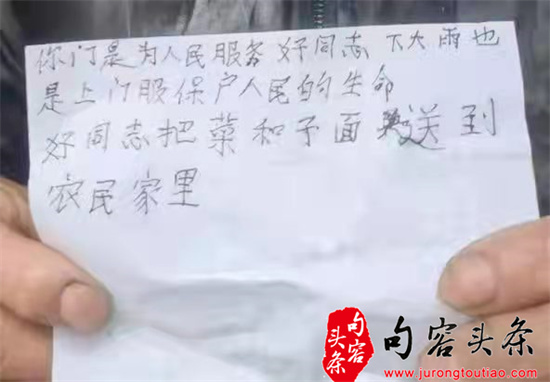 你门是为人民服务 好同志 下大雨也
是上门服保户人民的生命
好同志把菜和子面送到
农民家里
句容
头条
句容头条
www.jurongtoutiao.com